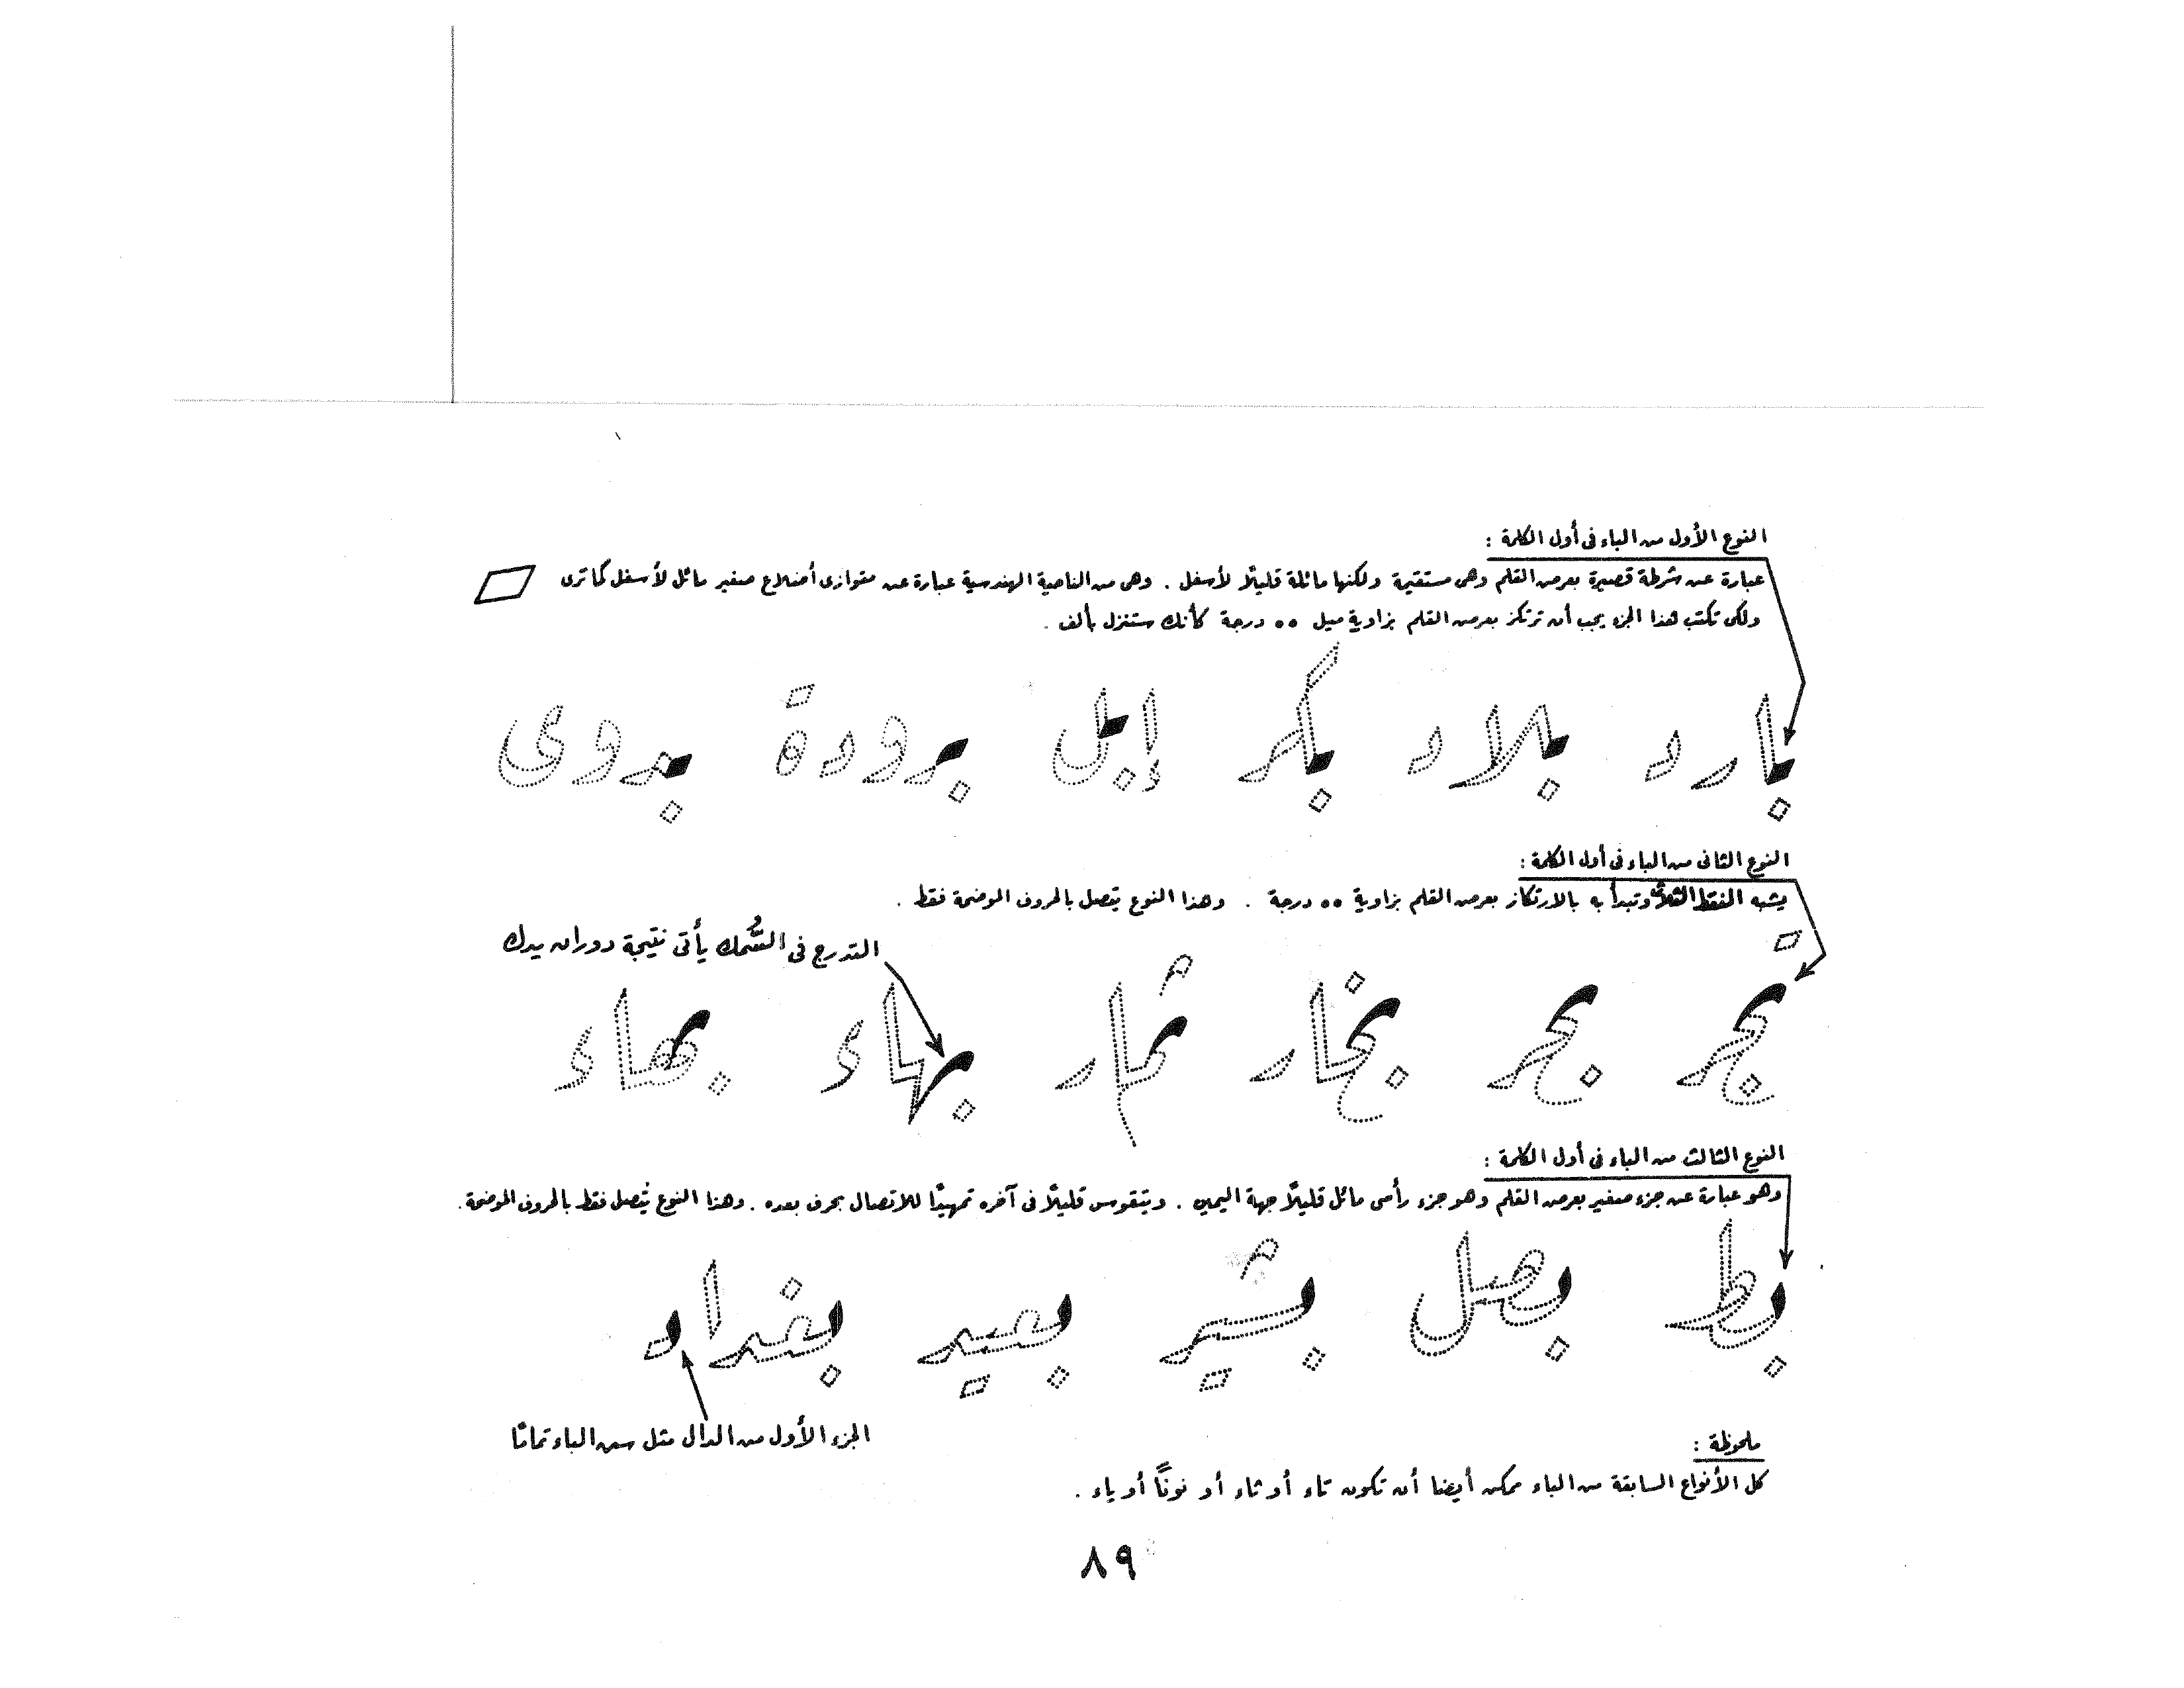 النوع الأول من الباء فى أول الكلمة :
عبارة عن شرطة قصيرة بعرض القلم وهى مستقيمة ولكنها مائلة قليلًا لأسفل . وهى من الناحية الهندسية عبارة عن متوازى أضلاع صغير مائل لأسفل كما ترى
ولكى تكتب هذا الجزء يجب أن ترتكز بعرض القلم بزاوية ميل ٥٥ درجة كأنك ستنزل بألف .
بارد بلاد بكر إبل برودة بدوى
النوع الثانى من الباء فى أول الكلمة :
يشبه النقط الثلاث وتبدأ به بالارتكاز بعرض القلم بزاوية ٥٥ درجة . وهذا النوع يتصل بالحروف الموضحة فقط .
التدرج فى السُّمك يأتى نتيجة دوران يدك
تجر بحر بخار ثمار بهاء بهاء
النوع الثالث من الباء فى أول الكلمة :
وهو عبارة عن جزء صغير بعرض القلم وهو جزء رأسى مائل قليلًا جهة اليمين . ويتقوس قليلًا فى آخره تمهيدًا للاتصال بحرف بعده . وهذا النوع يُتصل فقط بالحروف الموضحة .
بط بصل بشير بعير بغداد
الجزء الأول من الدال مثل سن الباء تمامًا
ملحوظة :
كل الأنواع السابقة من الباء ممكن أيضا أن تكون تاء أو ثاء أو نونًا أو ياء .
٨٩